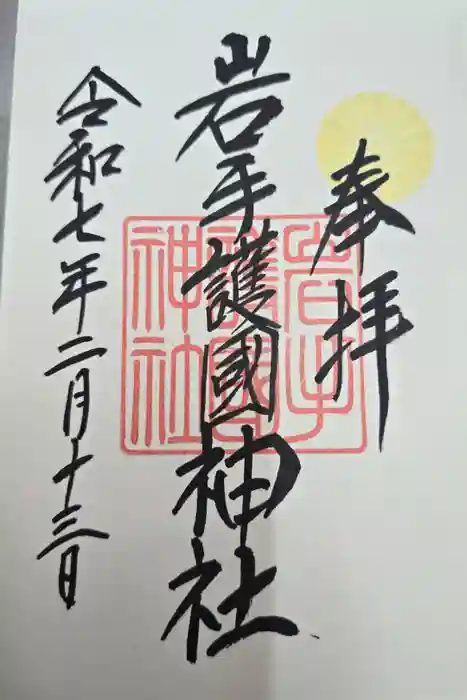 奉拝
岩手護國神社
岩手護國神社
令和七年二月十三日